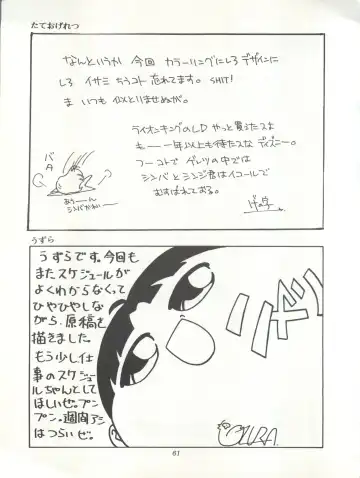 たておげれつ
なんというか 今回 カラーリングにしろ デザインに
しろ イサミ ちうコト 忘れてます。 SHIT!
ま いつも 似とりませぬが。
ライオンキングのLD やっと買えたスよ
も――一年以上も待たすな ディズニー。
フーコトで ゲレツの中では
シンバとシンジ君はイコールで
むすばれておる。
バタ
あぅ――ん
シンバかわいー
うずら
うずらです。今回も
またスケジュールが
よくわからなくって
ひやひやしな
がら、原稿を
描きました。
もう少し仕
事のスケジュ
ールちゃんとして
ほしいぜ。プン
プン。週間アシ
はつらいぜ。
ニャッ
UZURA.
61